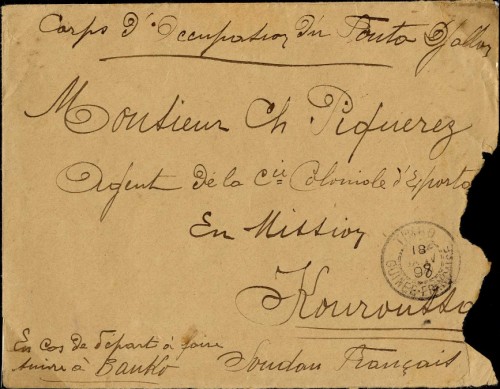 Corps d'Occupation du Fouta Djallon
Monsieur Ch Piquerez
Agent de la Cie Coloniale d'Exporta
En Mission
TIMBO
18
98
GUINEE FRANÇAISE
Kouroussa
En cas de départ à faire
suivre à Banko
Soudan Français